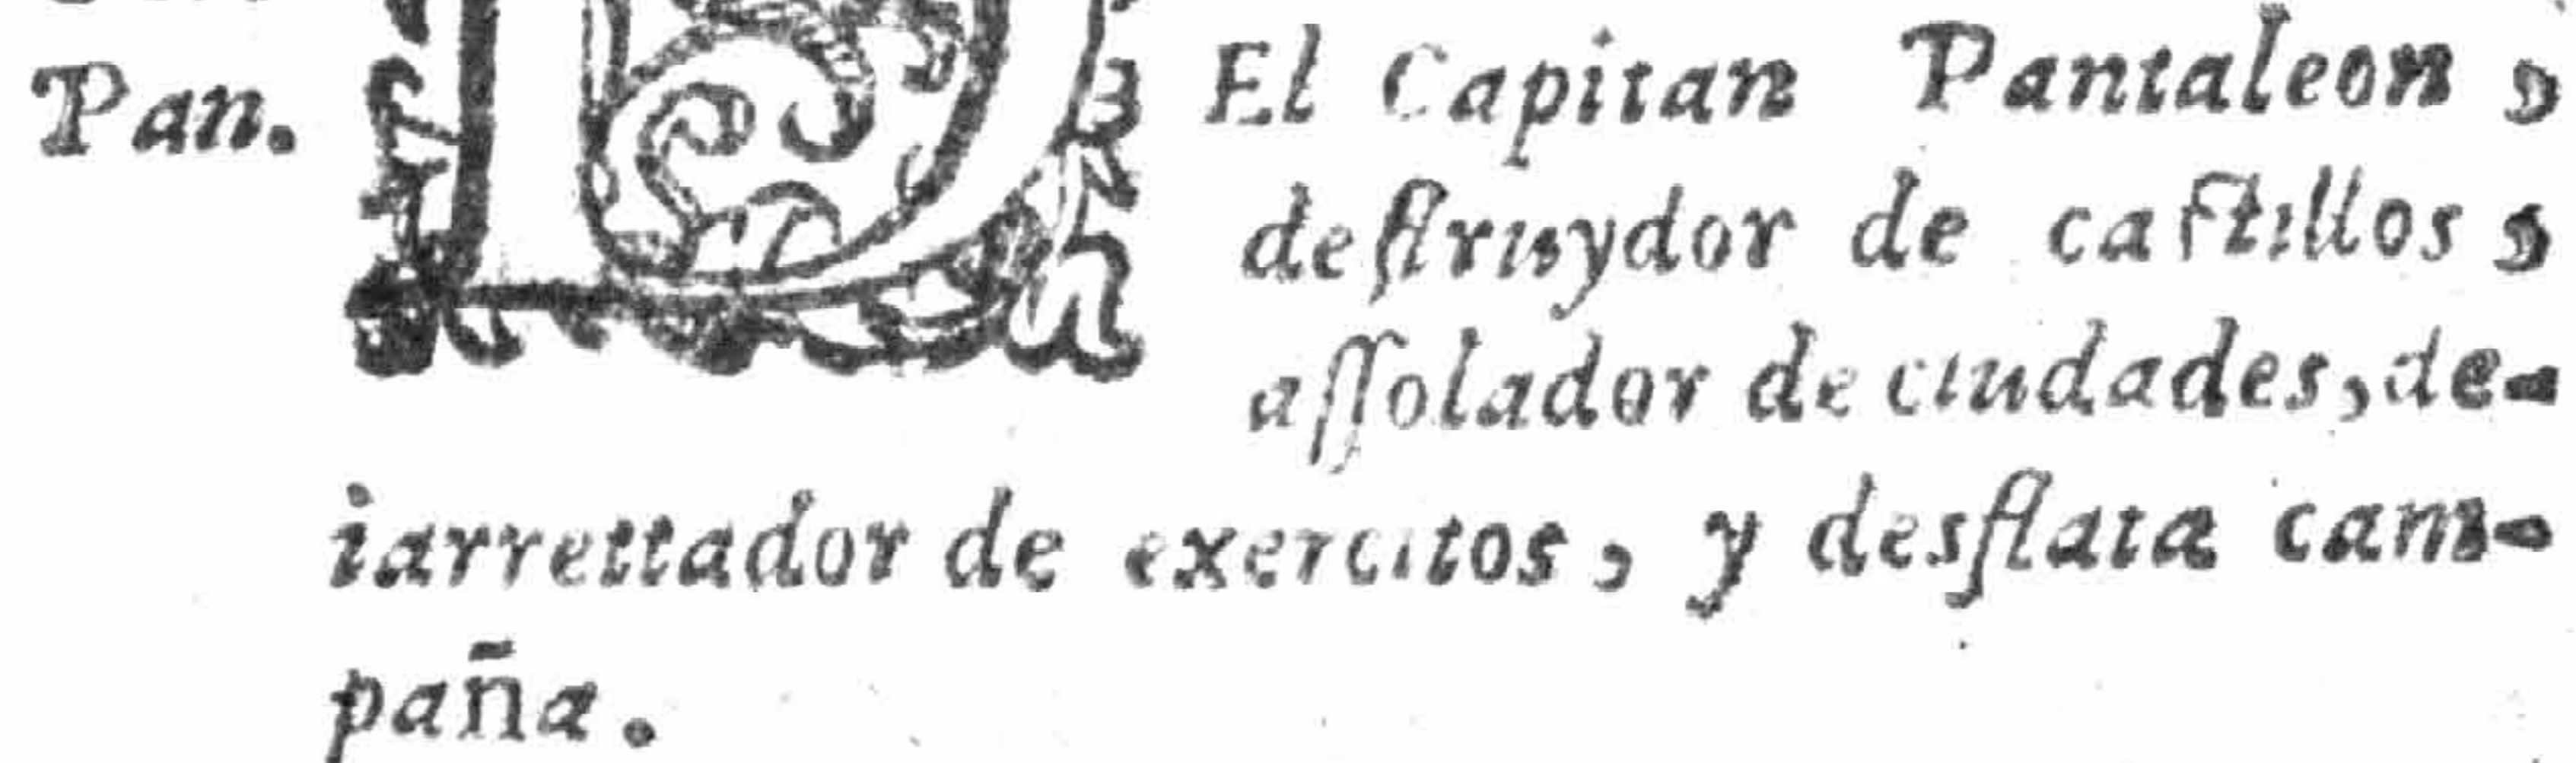 Pan. El Capitan Pantaleon,
destruydor de castillos,
assolador de ciudades, de-
iarrettador de exercitos, y desflata cam-
paña.